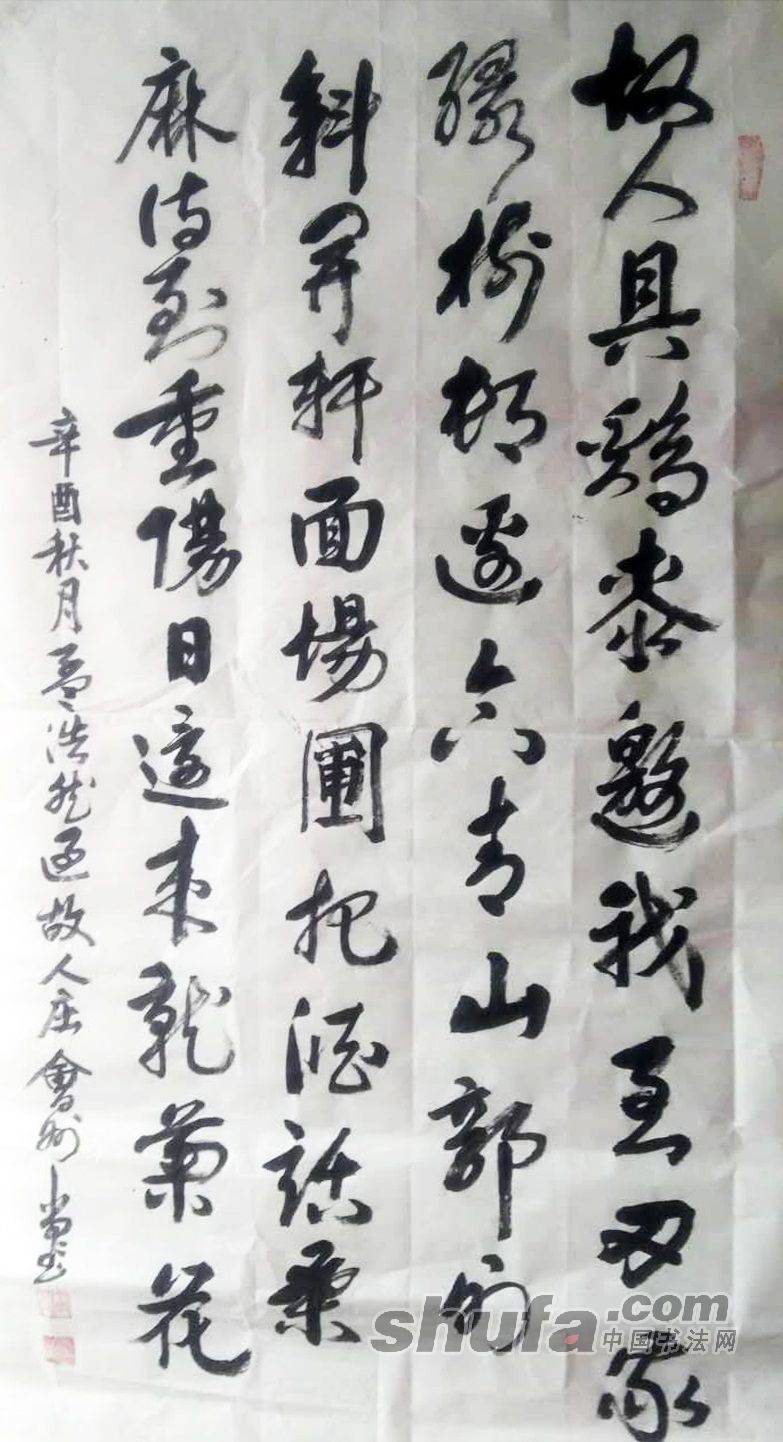 故人具鷄黍邀我至田家
緑樹邨邊合青山郭外
斜開軒面場圃把酒話桑
麻待到重陽日還來就菊花
辛酉秋月孟浩然過故人庄會州
shufa.com
中国书法网